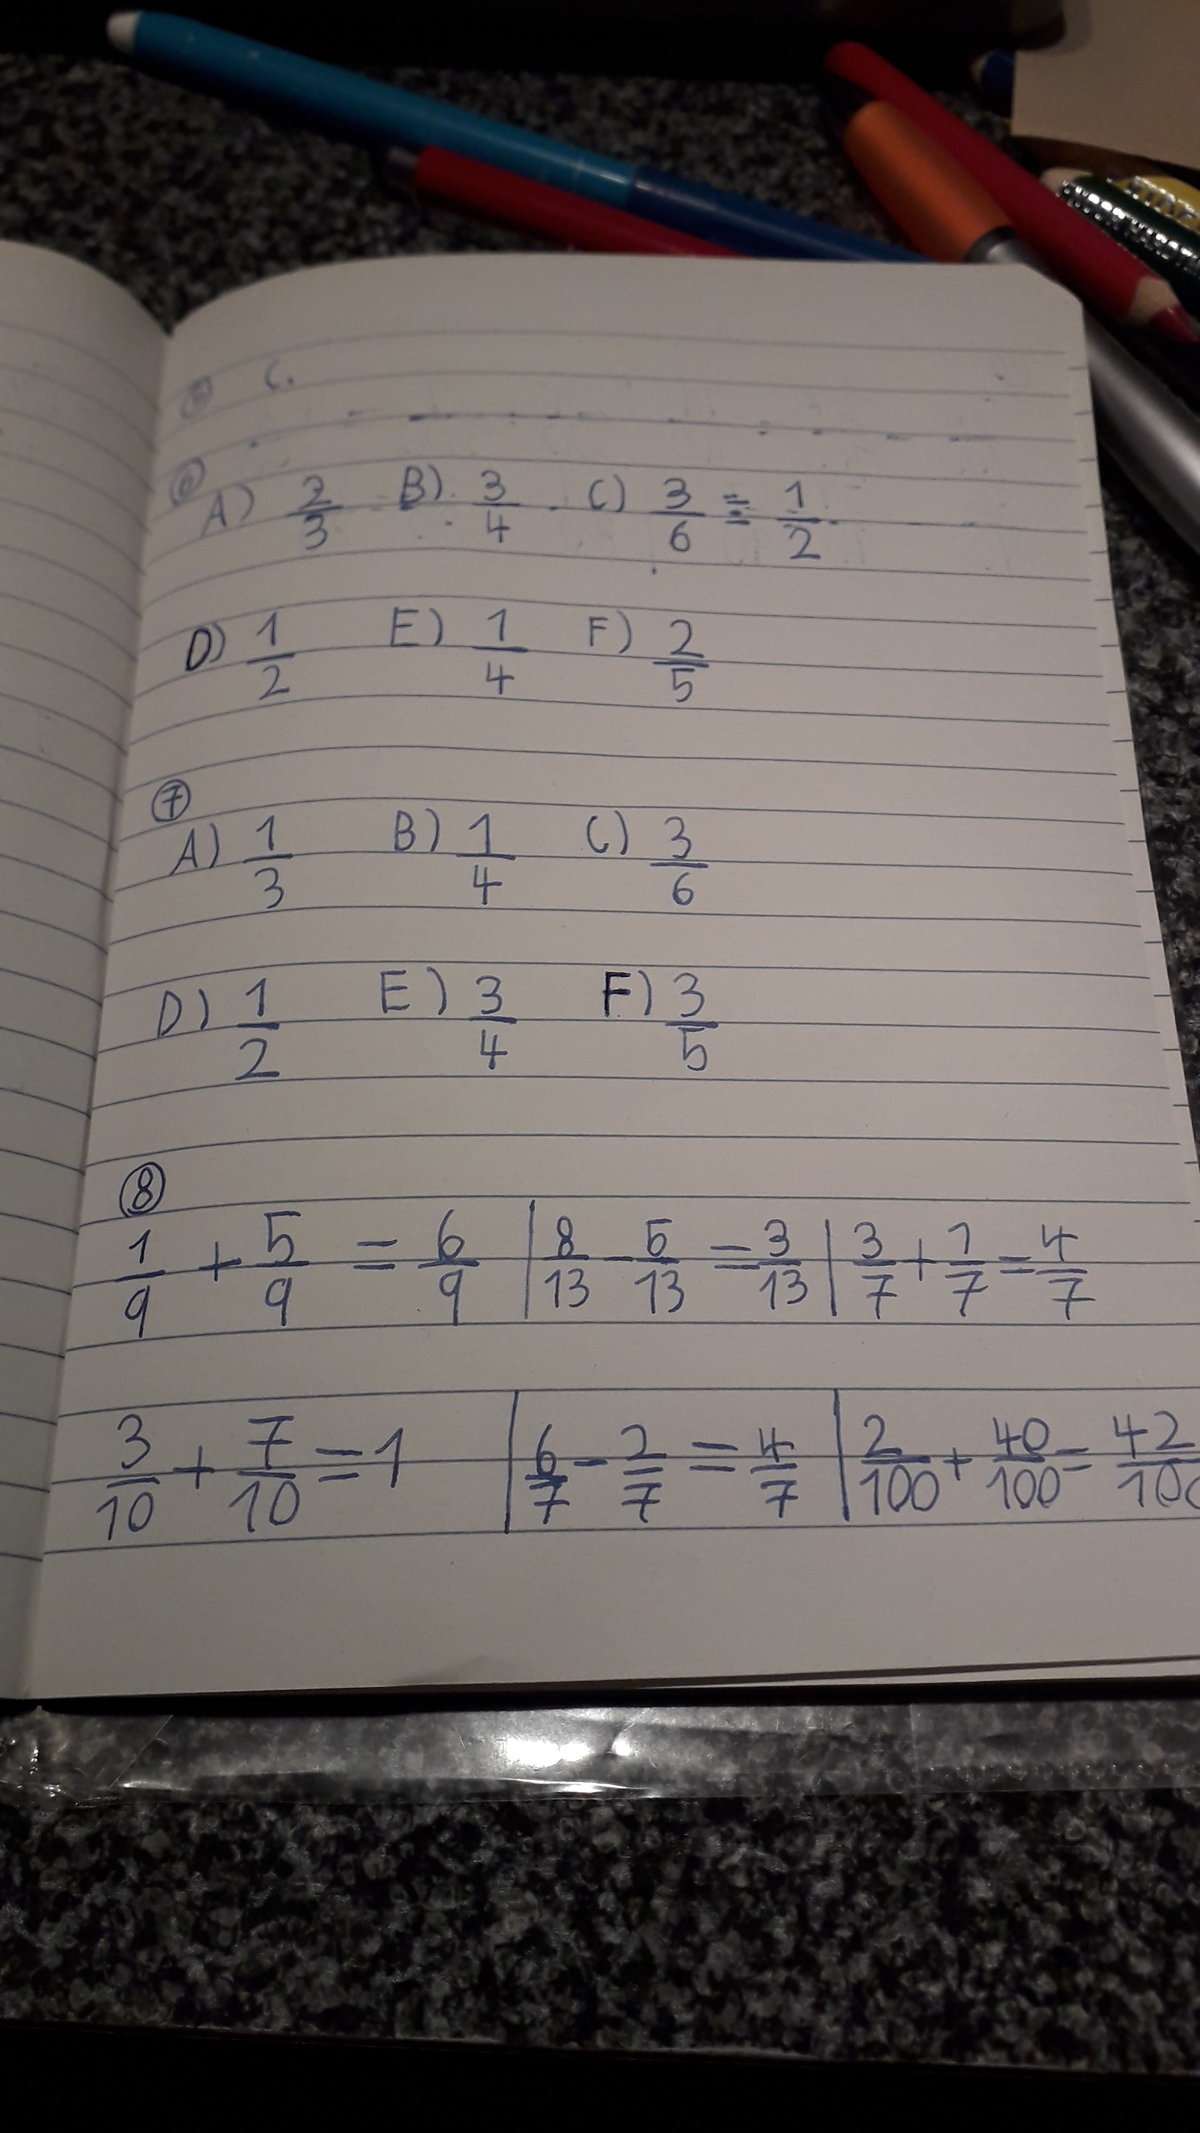 ⑤ C.
⑥
A) 2/3 B) 3/4 C) 3/6 = 1/2
D) 1/2 E) 1/4 F) 2/5
⑦
A) 1/3 B) 1/4 C) 3/6
D) 1/2 E) 3/4 F) 3/5
⑧
1/9 + 5/9 = 6/9 | 8/13 - 5/13 = 3/13 | 3/7 + 1/7 = 4/7
3/10 + 7/10 = 1 | 6/7 - 2/7 = 4/7 | 2/100 + 40/100 = 42/100